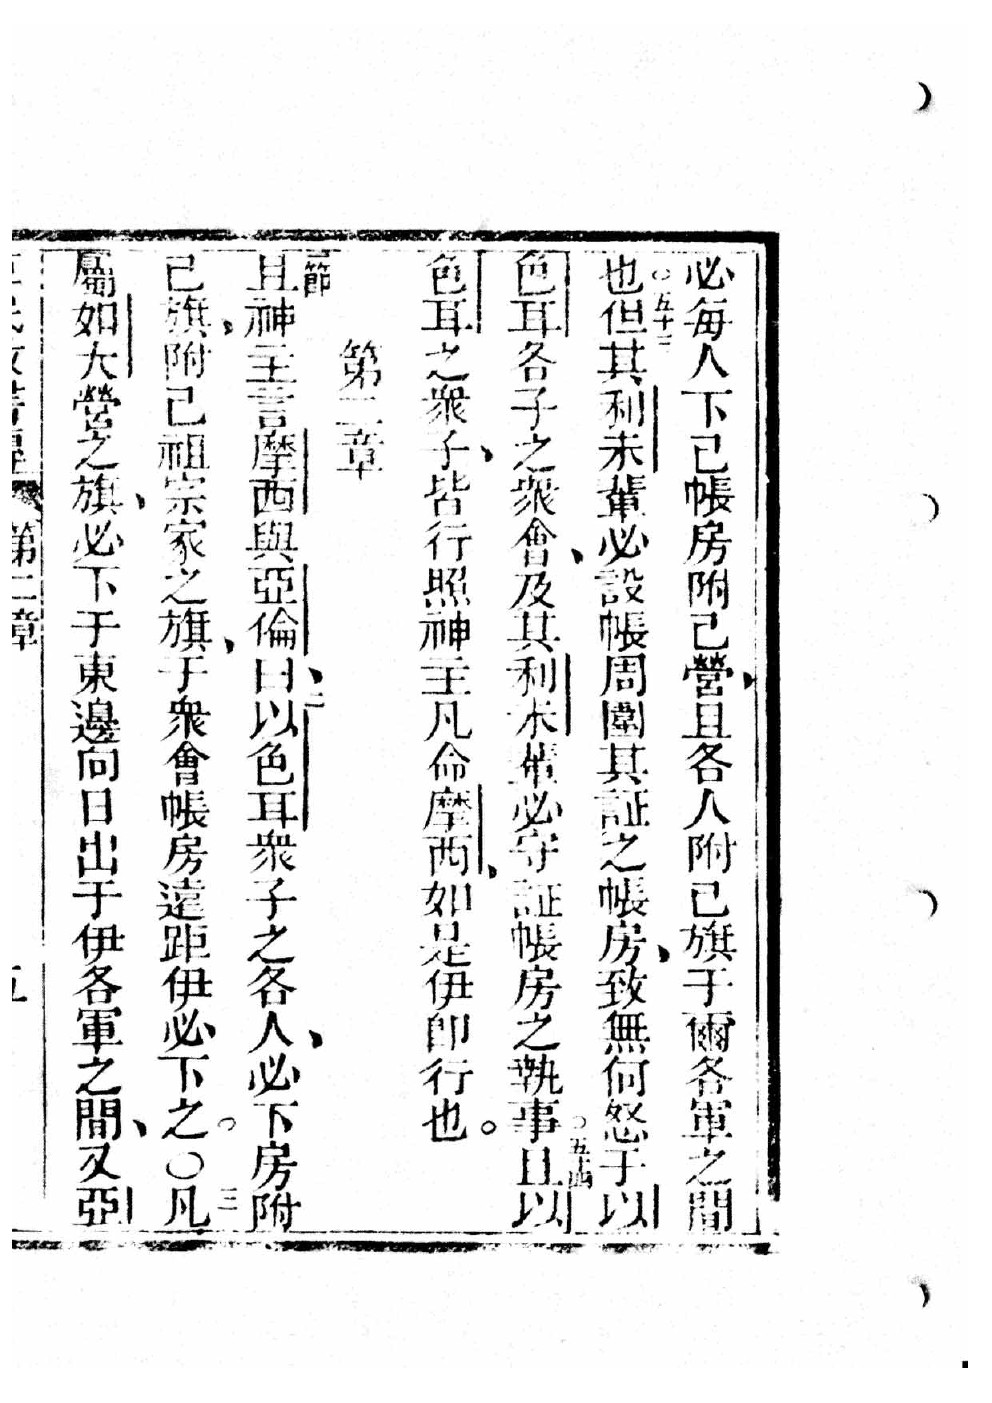 必每人下己帳房附己營、且各人附己旗于爾各軍之間
也。五十三但其利未輩必設帳周圍其証之帳房、致無何怒于以
色耳各子之衆會、及其利未輩必守証帳房之執事。五十四且以
色耳之衆子、皆行照神主凡命摩西、如是伊卽行也。
第二章
一節且神主言摩西與亞倫曰、二以色耳衆子之各人、必下房附
己旗、附己祖宗家之旗、于衆會帳房遠距伊必下之。〇三凡
屬如大營之旗、必下于東邊向日出于伊各軍之間、又亞
第二章
五